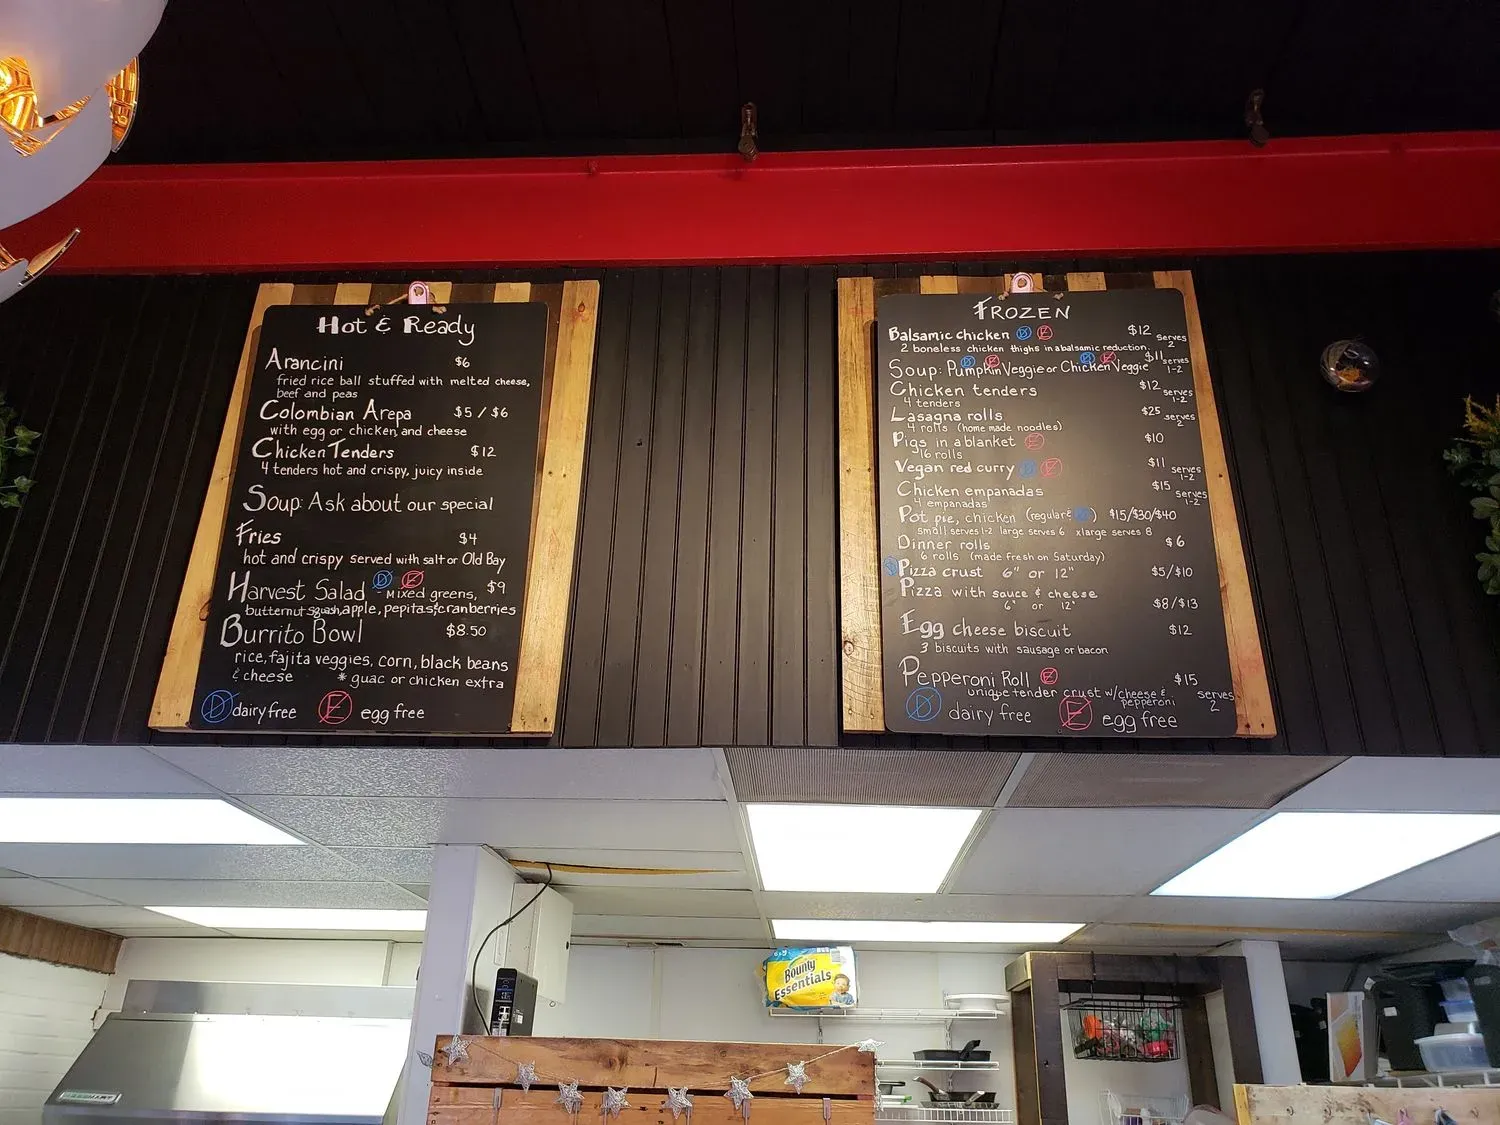 Hot & Ready
Arancini $6
fried rice ball stuffed with melted cheese,
beef and peas
Colombian Arepa $5 / $6
with egg or chicken, and cheese
Chicken Tenders $12
4 tenders hot and crispy, juicy inside
Soup: Ask about our special
Fries $4
hot and crispy served with salt or Old Bay
Harvest Salad D E - Mixed greens, $9
butternut squash, apple, pepitas, cranberries
Burrito Bowl $8.50
rice, fajita veggies, corn, black beans
& cheese * guac or chicken extra
D dairy free E egg free
Frozen
Balsamic chicken D E $12 serves 2
2 boneless chicken thighs in a balsamic reduction.
Soup: Pumpkin Veggie or Chicken Veggie D E D E $11 serves 1-2
Chicken tenders $12 serves 1-2
4 tenders
Lasagna rolls $25 serves 2
4 rolls (home made noodles)
Pigs in a blanket E $10
16 rolls
Vegan red curry D E $11 serves 1-2
Chicken empanadas $15 serves 1-2
4 empanadas
Pot pie, chicken (regular & D) $15/$30/$40
small serves 1-2 large serves 6 xlarge serves 8
Dinner rolls $6
6 rolls (made fresh on Saturday)
D Pizza crust 6" or 12" $5/$10
Pizza with sauce & cheese $8/$13
6" or 12"
Egg cheese biscuit $12
3 biscuits with sausage or bacon
Pepperoni Roll E $15
unique tender crust w/cheese & pepperoni serves 2
D dairy free E egg free
Bounty
Essentials